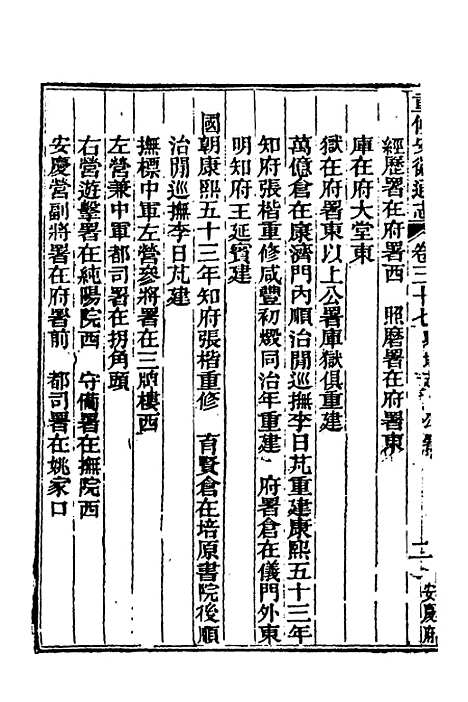 重修安徽通志 卷三十七 輿地志 公署 二 安慶府
經歷署在府署西 照磨署在府署東
庫在府大堂東
獄在府署東以上公署庫獄俱重建
萬億倉在康濟門內順治閒巡撫李日芃重建康熙五十三年
知府張楷重修咸豐初燬同治年重建 府署倉在儀門外東
明知府王延賓建
國朝康熙五十三年知府張楷重修 育賢倉在培原書院後順
治閒巡撫李日芃建
撫標中軍左營參將署在三牌樓西
左營兼中軍都司署在拐角頭
右營遊擊署在純陽院西 守備署在撫院西
安慶營副將署在府署前 都司署在姚家口